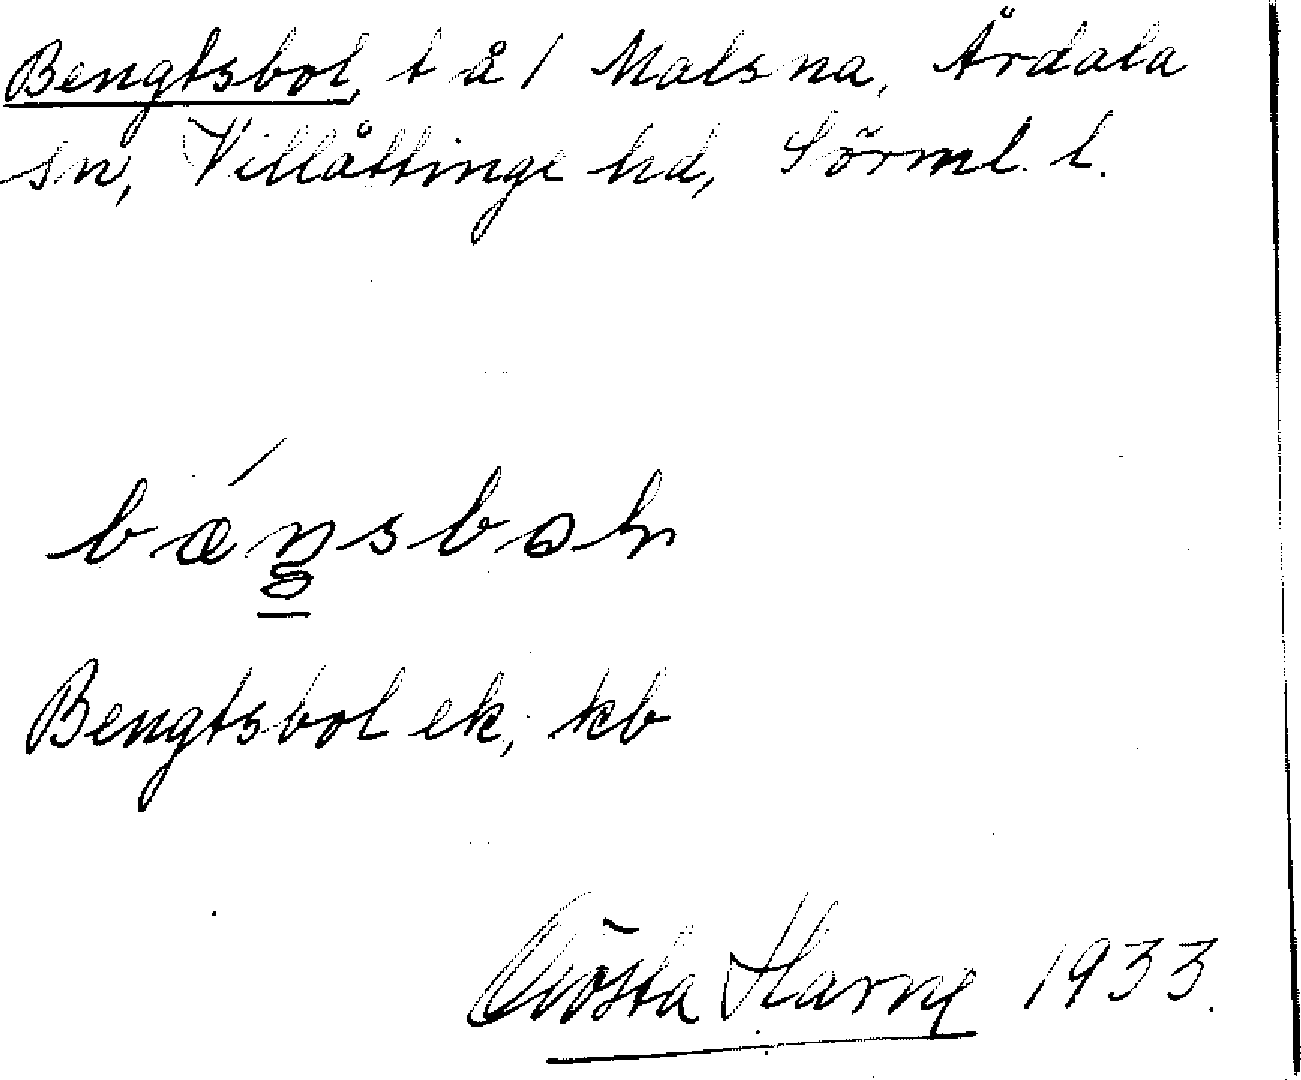 Bengtsbol, t å 1 Malsna, Årdala
sn, Villåttinge hd, Sörml. l.
Bengtsbol ek, kb
Gösta Harne 1933.